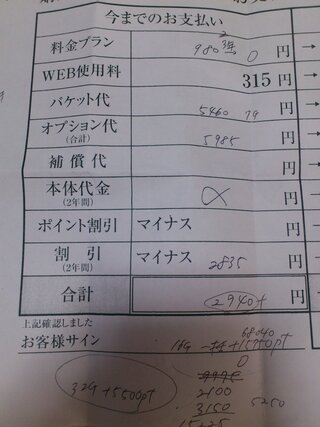 今までのお支払い
料金プラン 980 0 円
WEB使用料 315 円
パケット代 5460 円
オプション代 (合計) 5985 円
補償代 円
本体代金 (2年間) α 円
ポイント割引 マイナス 円
割引 (2年間) マイナス 2835 円
合計 2940 円
上記確認しました
お客様サイン
68040
+15750pt
0
2100
3150 5250
32G+5500pt